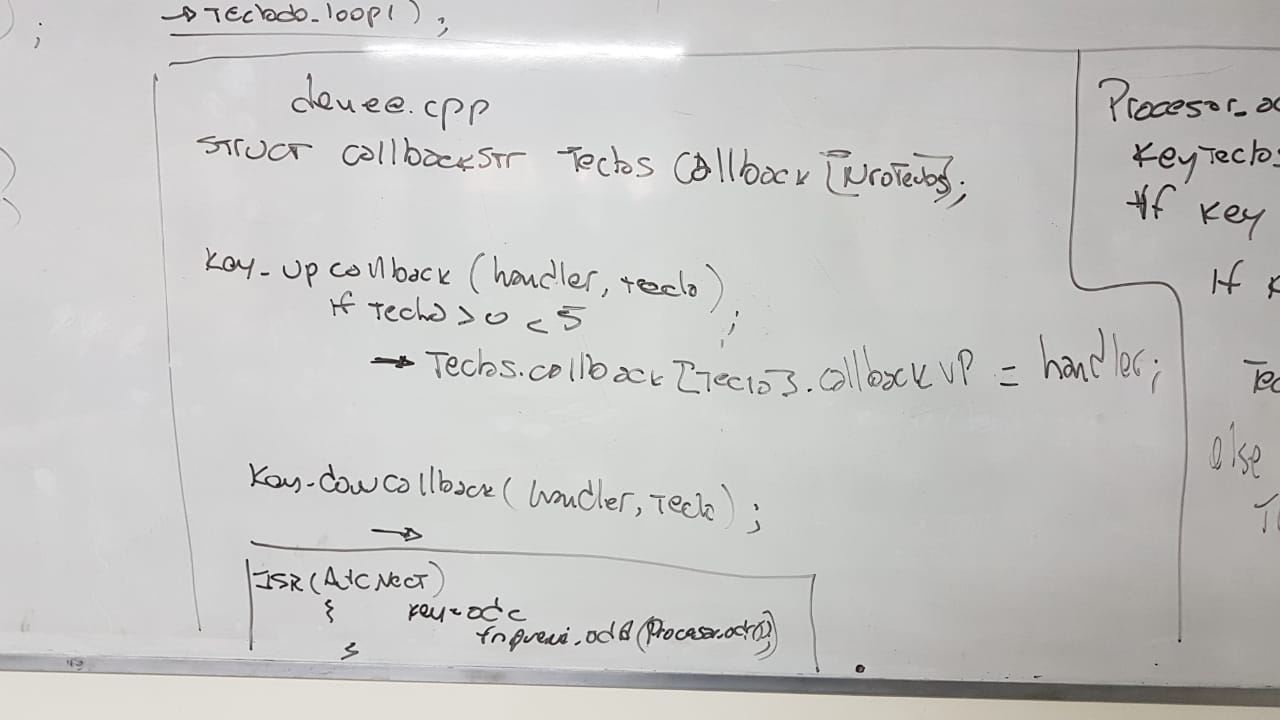 ;
→ Teclado_loop( ) ;
devee.cpp
struct callbackstr Teclas Callback [NroTeclas];
Key_up callback (handler, tecla) ;
If Tecla > 0 < 5
→ Teclas.callback [Tecla].callback UP = handler;
Key_dow callback ( handler, Tecla ) ;
→
ISR (
{ key = adc
}
Procesor_
KeyTecla
If Key
If
Tec
else
T